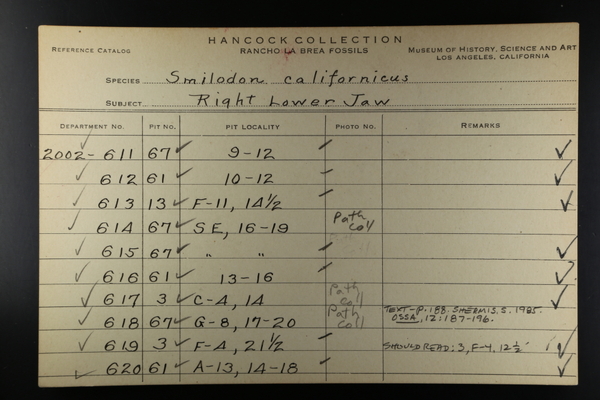 HANCOCK COLLECTION
REFERENCE CATALOG RANCHO LA BREA FOSSILS MUSEUM OF HISTORY, SCIENCE AND ART
LOS ANGELES, CALIFORNIA
SPECIES Smilodon californicus
SUBJECT Right Lower Jaw
DEPARTMENT NO. PIT NO. PIT LOCALITY PHOTO NO. REMARKS
2002-611 67 9-12
612 61 10-12
613 13 F-11, 14½
614 67 SE, 16-19 Path Coll
615 67 " "
616 61 13-16
617 3 C-4, 14 Path Coll
618 67 G-8, 17-20 Path Coll TEXT-P.188. SHERMIS, S. 1985.
OSSA, 12:187-196.
619 3 F-4, 21½ SHOULD READ: 3, F-4, 12½'
620 61 A-13, 14-18